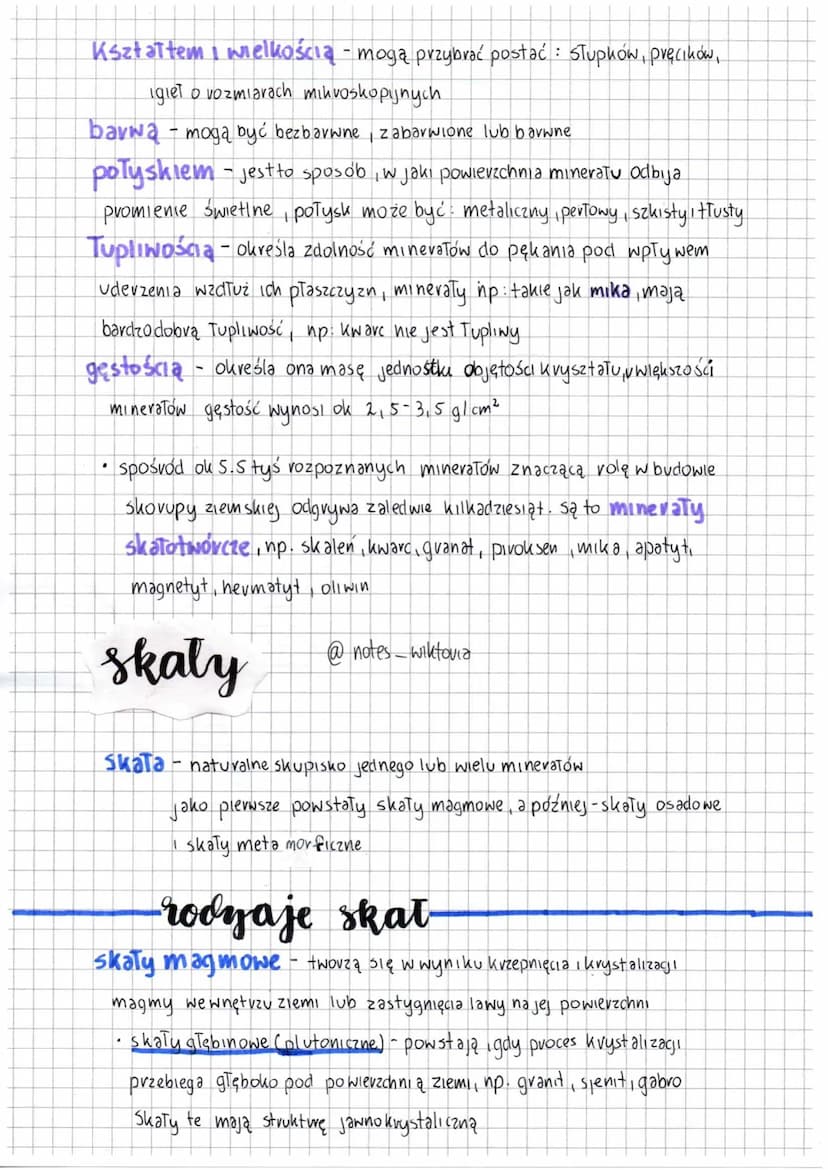 kształtem i wielkością - mogą przybrać postać : słupków, pręcików,
igieł o rozmiarach mikroskopijnych
barwą - mogą być bezbarwne, zabarwione lub barwne
połyskiem - jest to sposób, w jaki powierzchnia minerału odbija
promienie świetlne, połysk może być: metaliczny, perłowy, szklisty i tłusty
Łupliwością - określa zdolność minerałów do pękania pod wpływem
uderzenia wzdłuż ich płaszczyzn, minerały np: takie jak mika, mają
bardzo dobrą łupliwość, np: kwarc nie jest łupliwy
gęstością - określa ona masę jednostki objętości kryształu, w większości
minerałów gęstość wynosi ok 2,5-3,5 g/cm²
• spośród ok 5.5 tyś rozpoznanych minerałów znaczącą rolę w budowie
skorupy ziemskiej odgrywa zaledwie kilkadziesiąt. są to minerały
skałotwórcze, np. skaleń, kwarc, granat, piroksen, mika, apatyt,
magnetyt, hermatyt, oliwin
skały
@ notes_wiktoria
skała - naturalne skupisko jednego lub wielu minerałów
jako pierwsze powstały skały magmowe, a później - skały osadowe
i skały metamorficzne
rodzaje skał
skały magmowe - tworzą się w wyniku krzepnięcia i krystalizacji
magmy we wnętrzu ziemi lub zastygnięcia lawy na jej powierzchni
• skały głębinowe (plutoniczne) - powstają, gdy proces krystalizacji
przebiega głęboko pod powierzchnią ziemi, np. granit, sjenit, gabro
Skały te mają strukturę jawnokrystaliczną